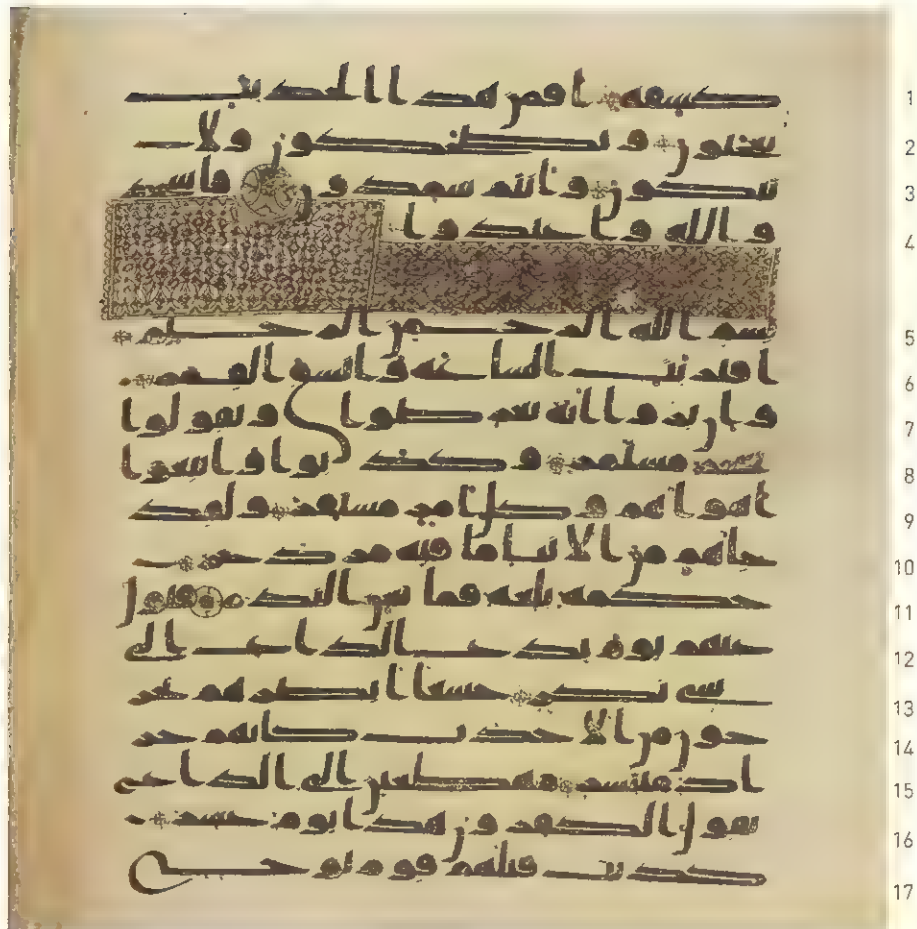 1 كشفه افمن هذا الحديث
2 تعجبون وتضحكون ولا
3 تبكون وانتم سمدون فاسجد
4 وا لله واعبدوا
5 بسم الله الرحمن الرحيم
6 اقتربت الساعه وانشق القمر
7 وان يروا ايه يعرضوا ويقولوا
8 سحر مستمر وكذبوا واتبعوا
9 اهواهم وكل امر مستقر ولقد
10 جاهم من الانبا ما فيه مزدجر
11 حكمه بلغه فما تغن النذر فتول
12 عنهم يوم يدع الداع الى
13 شى نكر خشعا ابصرهم يخر
14 جون من الاجدث كانهم جر
15 اد منتشر مهطعين الى الداع
16 يقول الكفرون هذا يوم عسر
17 كذبت قبلهم قوم نوح